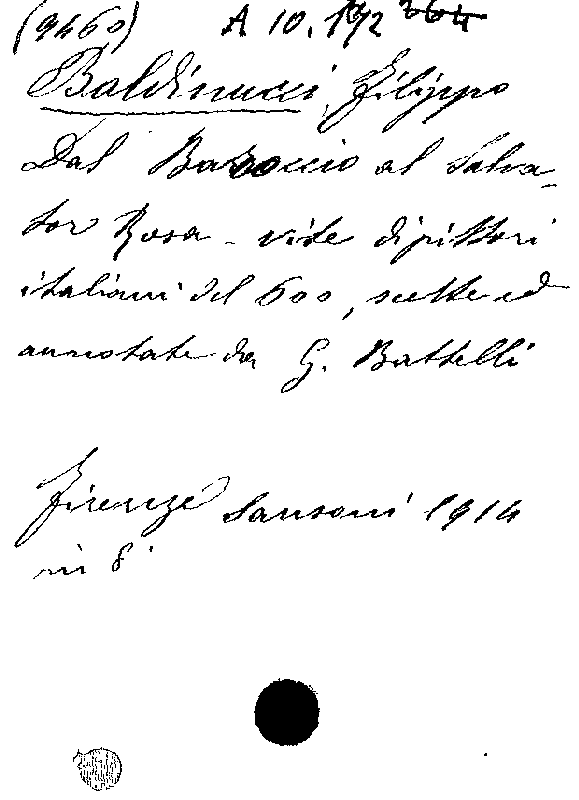 (9460) A 10. 192 264
Baldinucci Filippo
Dal Baroccio al Salva-
tor Rosa - vite di pittori
italiani del 600, scelte ed
annotate da G. Battelli
Firenze Sansoni 1914
in 8°